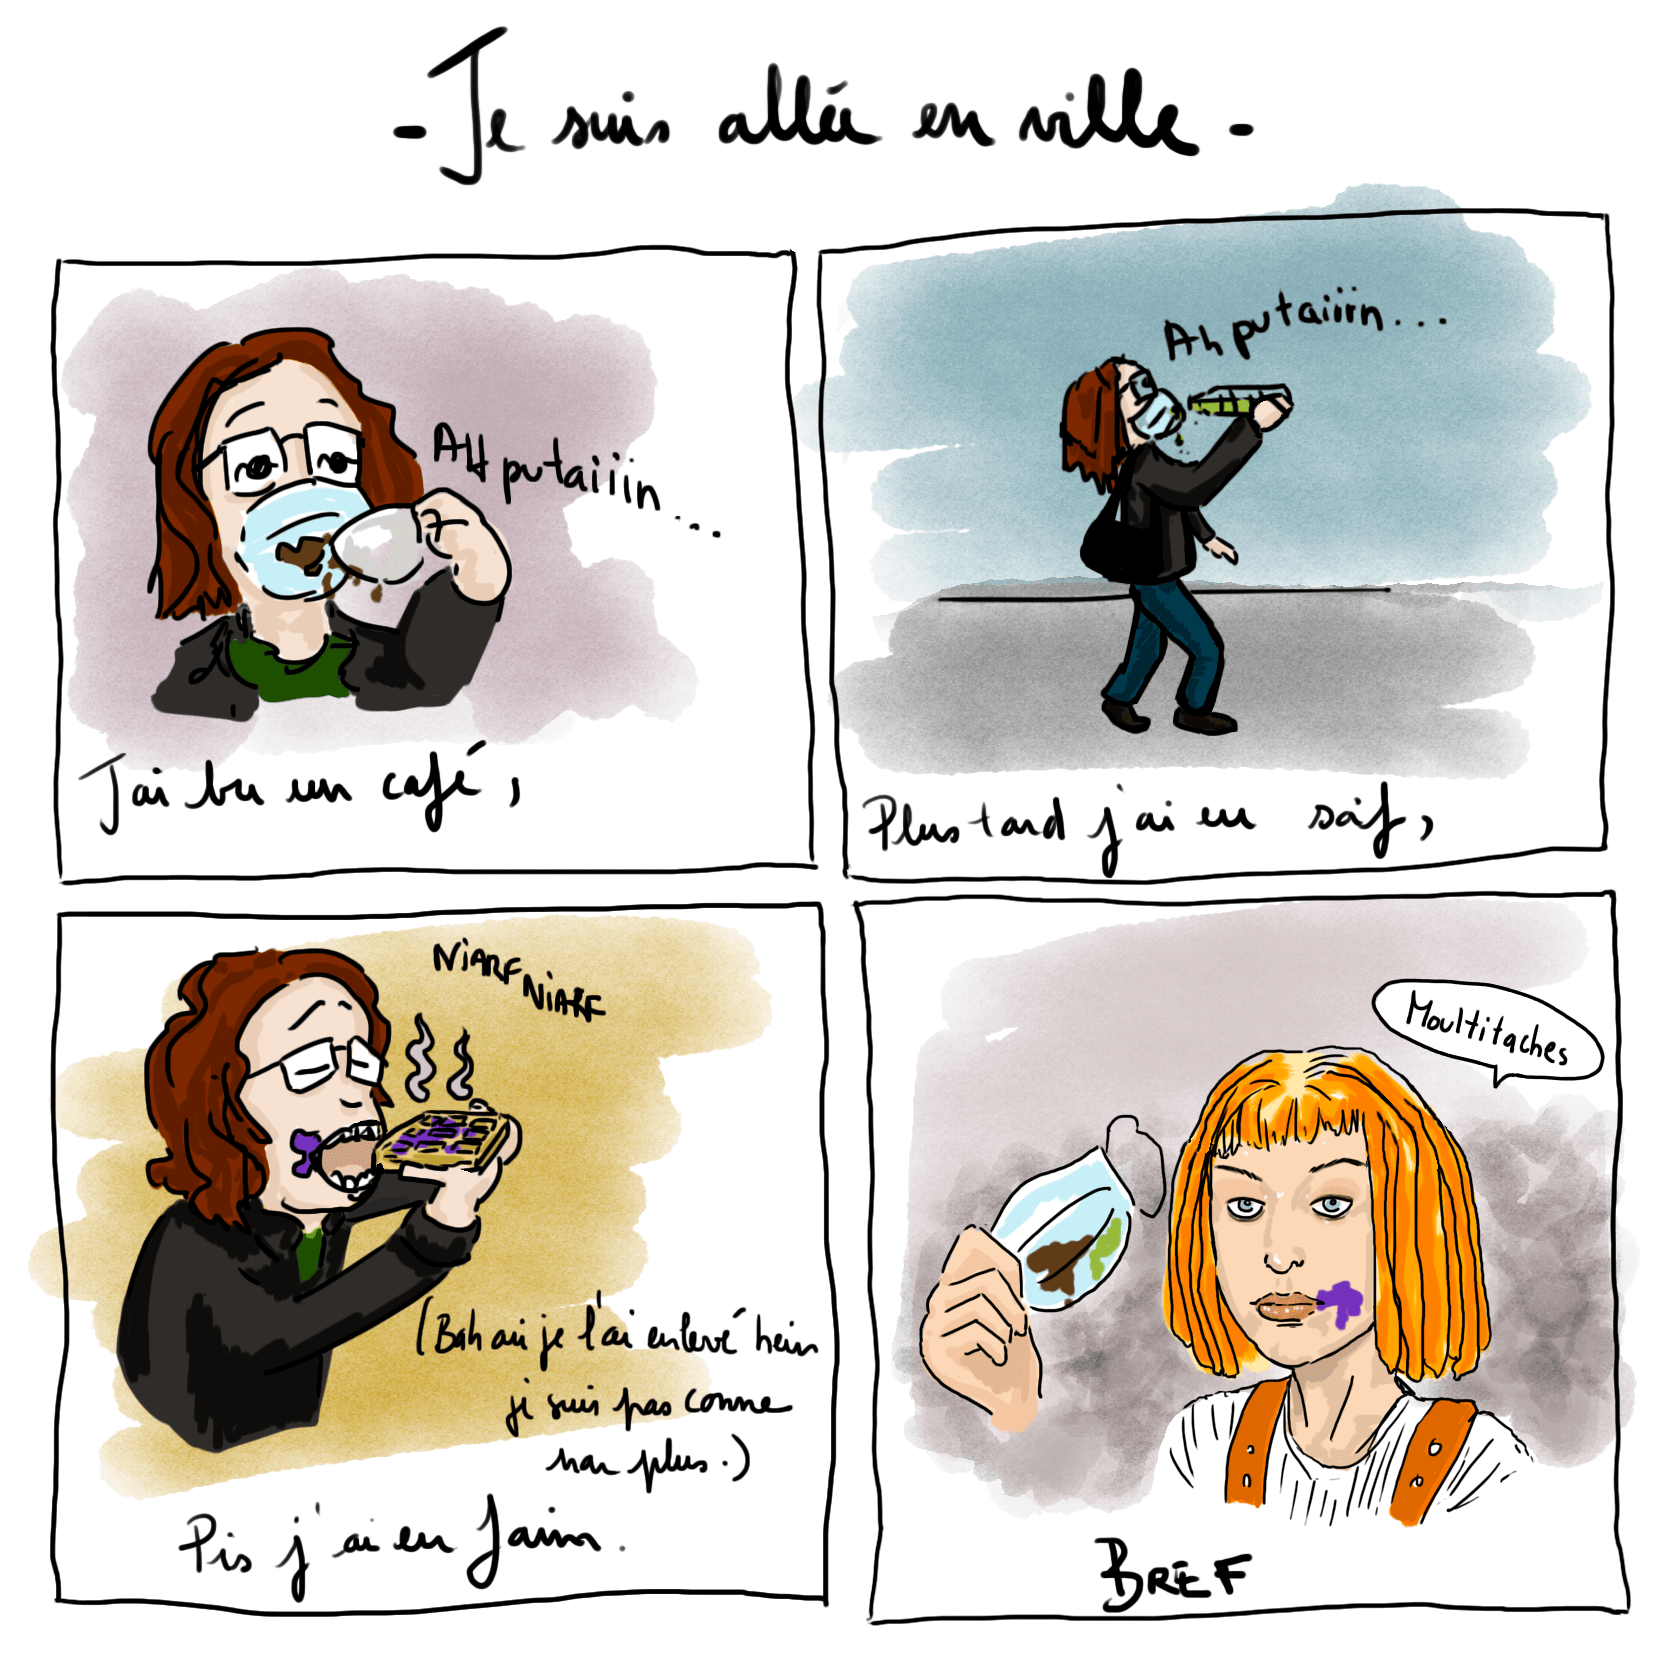 - Je suis allée en ville -
AH putaiiin...
J'ai bu un café,
Ah putaiiin...
Plus tard j'ai eu soif,
NiARF
NiARF
(Bah oui je l'ai enlevé hein
je suis pas conne
non plus.)
Pis j'ai eu faim.
Moultitaches
BREF